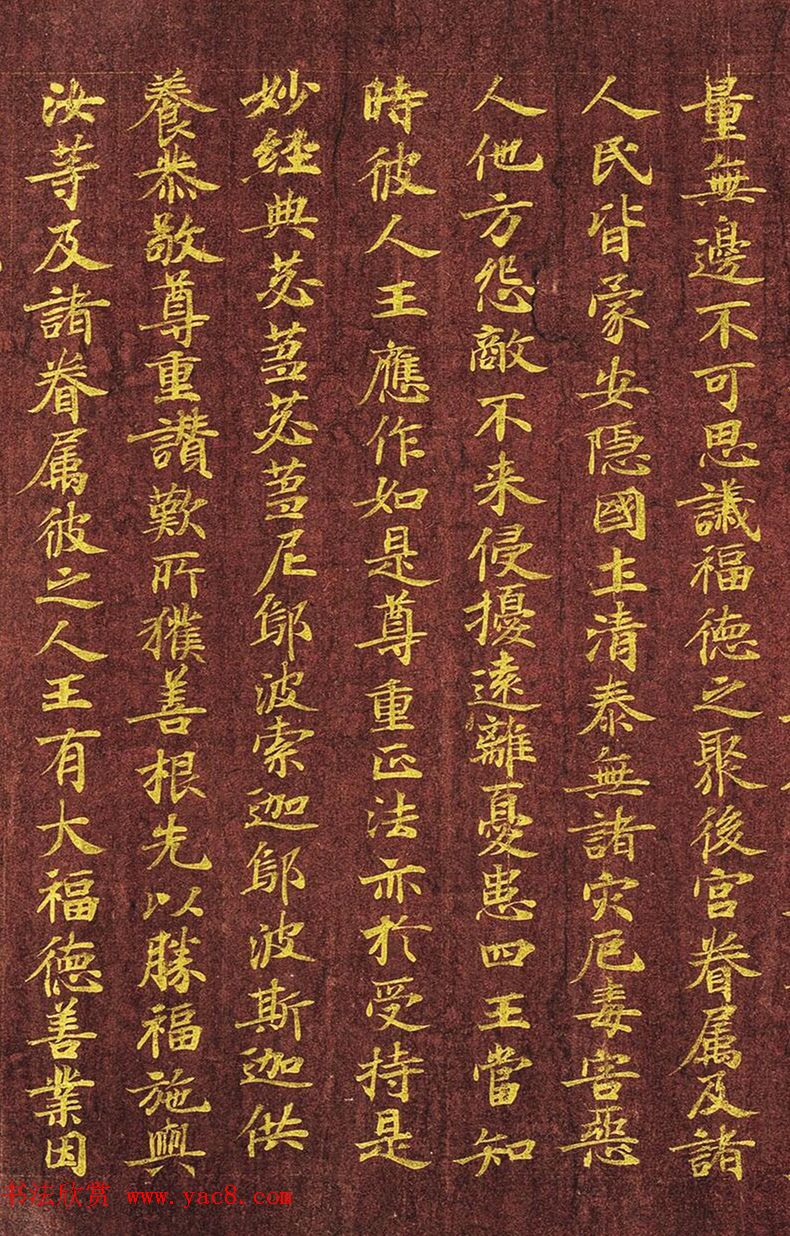 量無邊不可思議福徳之聚後宮眷属及諸
人民皆蒙安隠國土清泰無諸灾厄毒害惡
人他方怨敵不来侵擾遠離憂患四王當知
時彼人王應作如是尊重正法亦於受持是
妙經典苾蒭苾蒭尼鄔波索迦鄔波斯迦供
養恭敬尊重讃歎所獲善根先以勝福施與
汝等及諸眷属彼之人王有大福徳善業因
书法欣赏 www.yac8.com